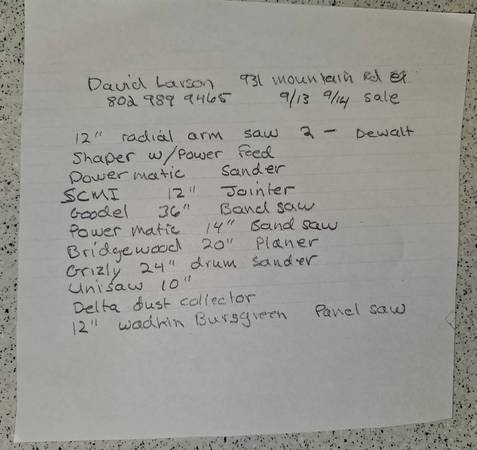 David Larson 931 mountain Rd
802 989 9465 9/13 9/14 sale
12" radial arm saw 2 - Dewalt
Shaper w/Power Feed
Powermatic Sander
SCMI 12" Jointer
Goodel 36" Band saw
Power matic 14" Band saw
Bridgewood 20" Planer
Grizly 24" drum sander
Unisaw 10"
Delta dust collector
12" wadkin Bursgreen Panel saw